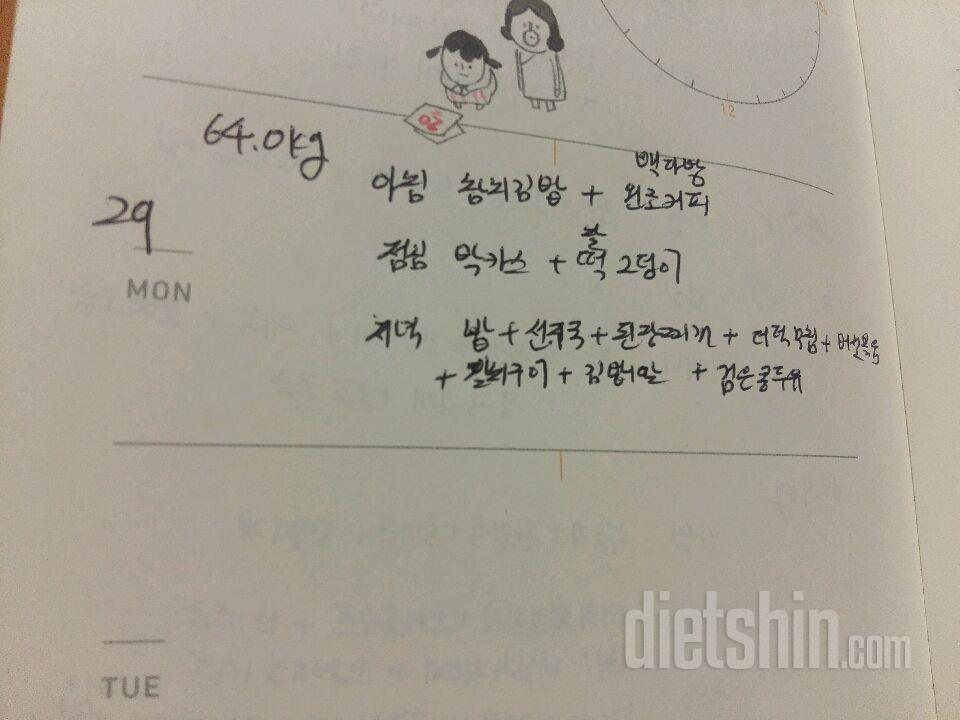 12
64.0kg
29
MON
백다방
아침 참치김밥 + 원조커피
꿀
점심 돈가스 + 떡 2덩이
저녁 밥 + 선지국 + 된장찌개 + 더덕무침 + 버섯볶음
+ 갈치구이 + 김 + 검은콩두유
TUE
dietshin.com